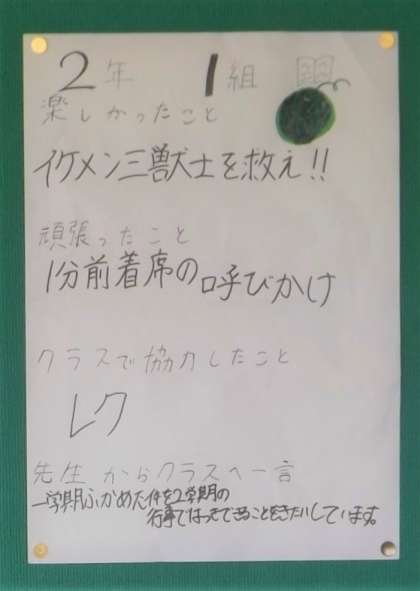 2年 1組
楽しかったこと
イケメン三獣士を救え!!
頑張ったこと
1分前着席の呼びかけ
クラスで協力したこと
レク
先生からクラスへ一言
一学期ふかめた仲を2学期の
行事で
できることをきたいしています。